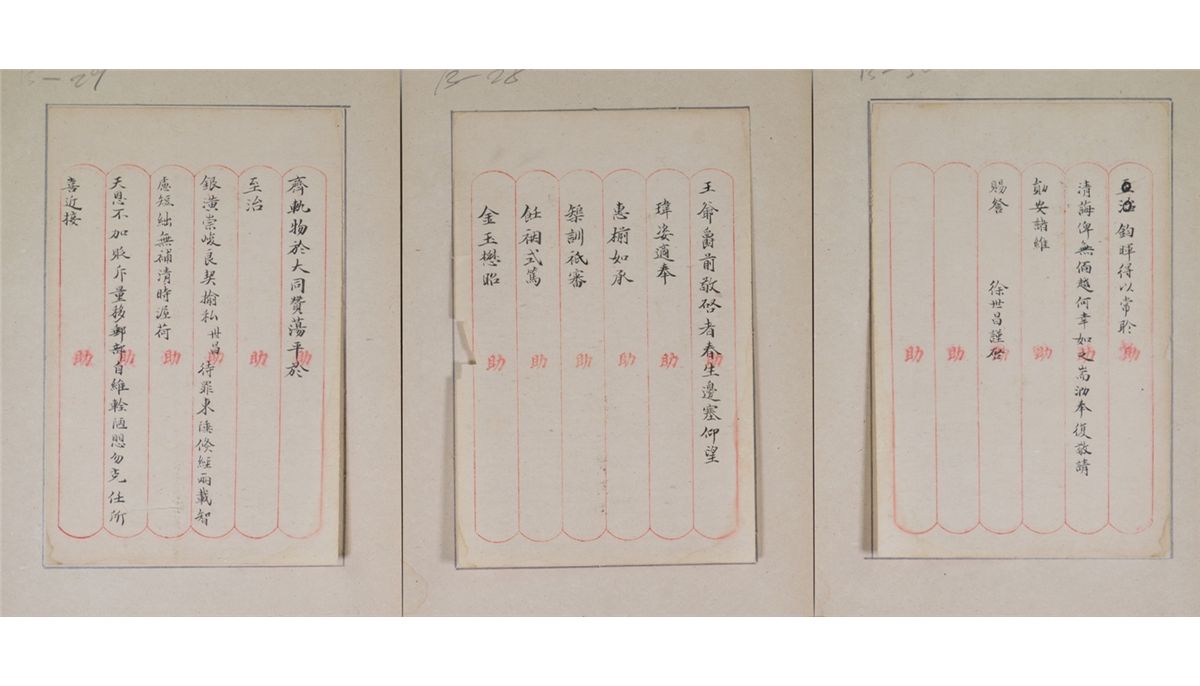 B-28
王爺爵前敬啓者春生邊塞仰望
瑋姿適奉
惠椾如承
榘訓祗審
式篤
金玉懋昭
助 助 助 助 助 助
B-29
齊軌物於大同贊蕩平於
至治
銀潢崇峻良契揄私世昌待罪東陲倏經兩載智
慮短絀無補清時渥荷
天恩不加貶斥量移郵部自維輇陋思勿克任所
喜近接
助 助 助 助 助 助
鈞暉得以常聆
清誨俾無偭越何幸如之耑泐奉復敬請
勛安諸維
賜詧 徐世昌謹啓
助 助 助 助 助 助